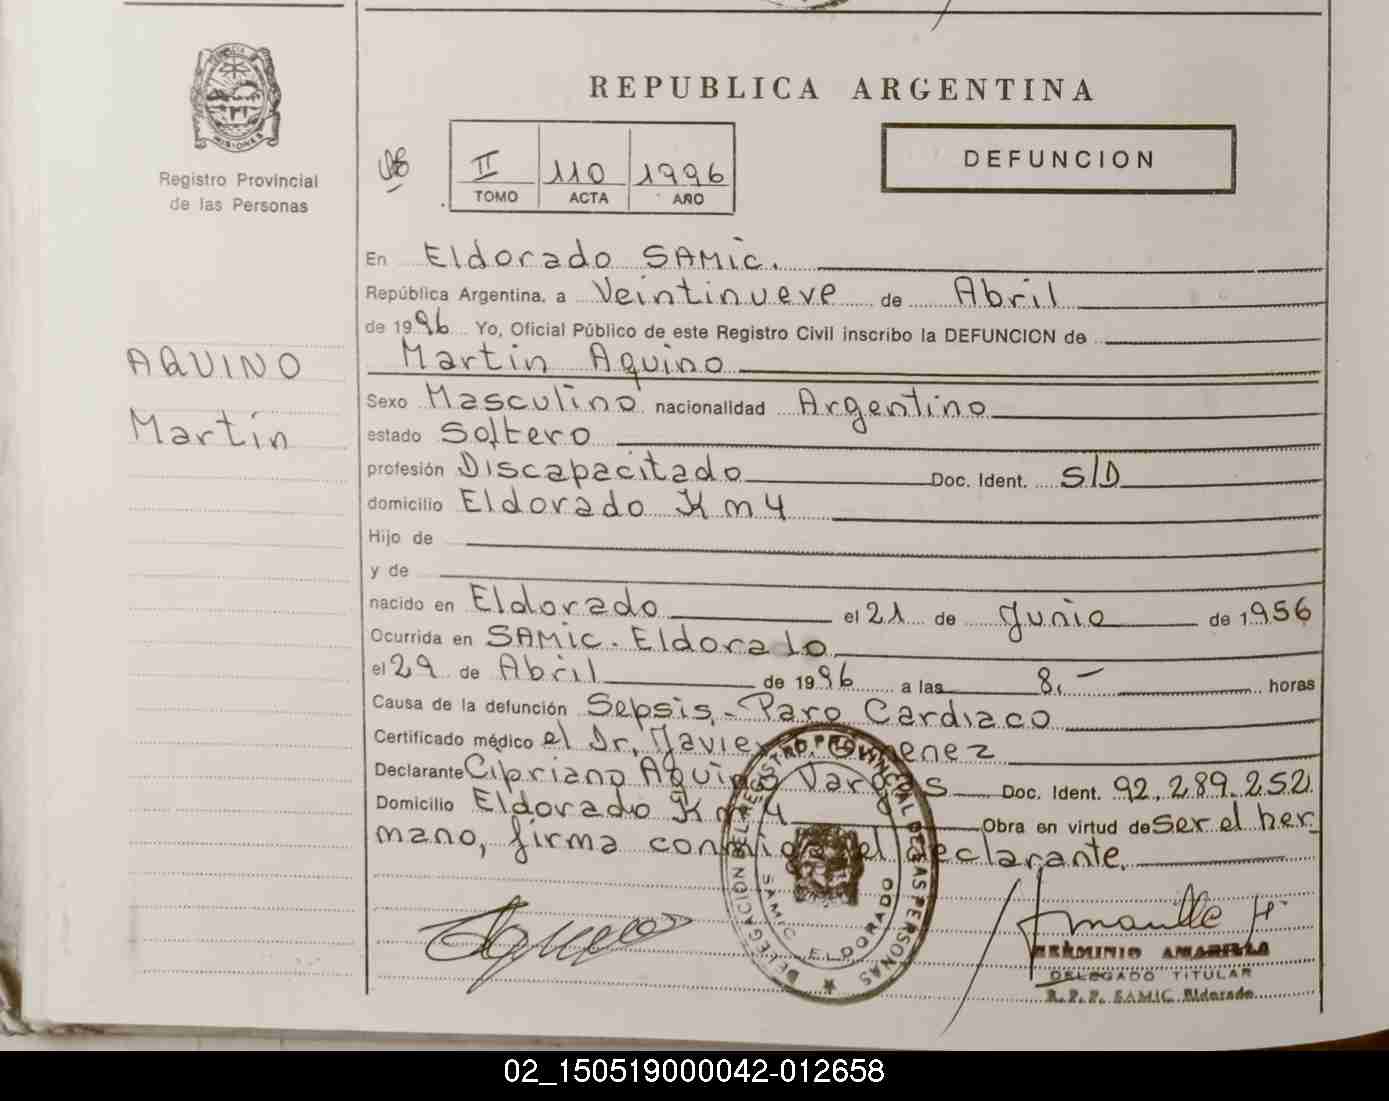 REPUBLICA ARGENTINA
MISIONES
Registro Provincial
de las Personas
II 110 1996
TOMO ACTA AÑO
DEFUNCION
En Eldorado SAMic.
República Argentina, a Veintinueve de Abril
de 1996 Yo, Oficial Público de este Registro Civil inscribo la DEFUNCION de
AQUINO
Martín
Martin Aquino
Sexo Masculino nacionalidad Argentino
estado Soltero
profesión Discapacitado Doc. Ident. S/D
domicilio Eldorado Km 4
Hijo de
y de
nacido en Eldorado el 21 de Junio de 1956
Ocurrida en SAMic. Eldorado
el 29 de Abril de 1996 a las 8,- horas
Causa de la defunción Sepsis - Paro Cardiaco
Certificado médico el Dr. Javier enez
Declarante Cipriano Aquino Vargas Doc. Ident. 92.289.252
Domicilio Eldorado Km 4 Obra en virtud de Ser el her
mano, firma conmigo el declarante.
DELEGACION DEL REGISTRO PROVINCIAL DE LAS PERSONAS
SAMIC ELDORADO
HERMINIO AMARILLA
DELEGADO TITULAR
R. P. P. SAMIC Eldorado
02_150519000042-012658